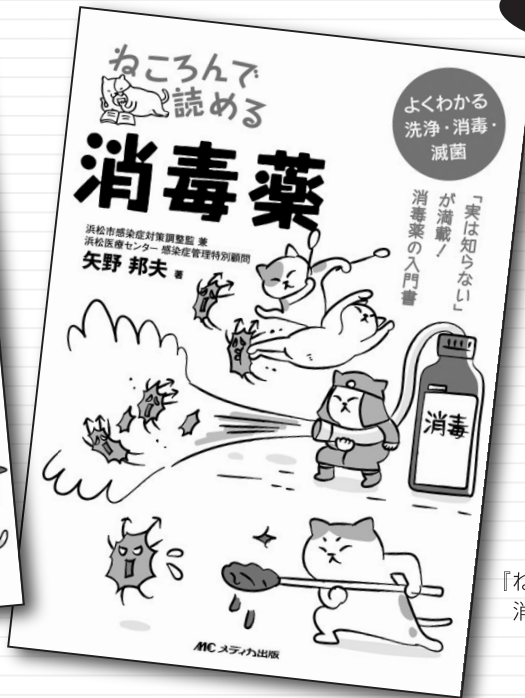 ねころんで
読める
消毒薬
よくわかる
洗浄・消毒・
滅菌
「実は知らない」
が満載！
消毒薬の入門書
浜松市感染症対策調整監 兼
浜松医療センター 感染症管理特別顧問
矢野 邦夫 著
消毒
MC メディカ出版
『ね
消